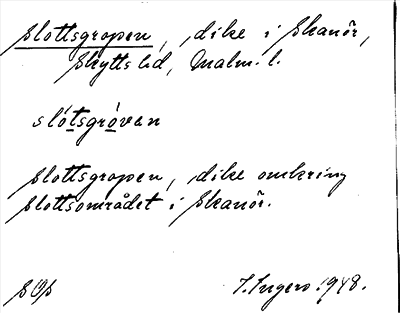 Slottsgropen, dike i Skanör,
Skytts hd, Malm. l.
slòtsgròvan
Slottsgropen, dike omkring
slottsområdet i Skanör.
SOS I. Ingers 1948.